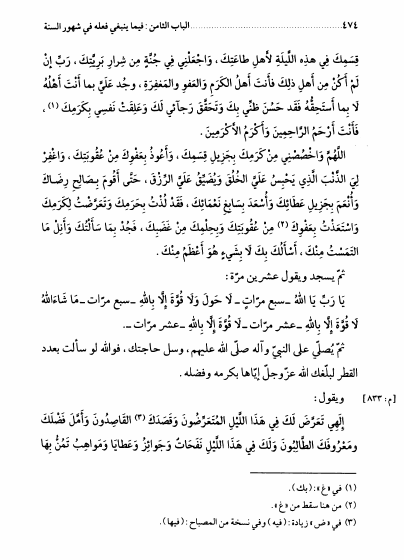 ٤٧٤ ............ الباب الثامن : فيما ينبغي فعله في شهور السنة
قِسَمِكَ فِي هذِهِ اللَّيْلَةِ لأَهلِ طاعَتِكَ ، وَاجْعَلْنِي فِي جُنَّةٍ مِن شِرارِ بَرِيَّتِكَ، رَبِّ إِنْ
لَمْ أَكُنْ مِن أهلِ ذلِكَ فَأنتَ أهلُ الكَرَمِ وَالعَفوِ والمَغفِرَةِ ، وجُد عَلَيَّ بما أنتَ أهْلُهُ
لا بِما أَستَحِقُّهُ فَقَد حَسُنَ ظَنِّي بِكَ وَتَحَقَّقَ رَجآئِي لَكَ وَعَلِقَتْ نَفسِي بِكَرَمِكَ (١) ،
فَأَنْتَ أَرْحَمُ الرَّاحِمِينَ وَأَكْرَمُ الأَكْرَمِينَ .
اللَّهُمَّ وَاخْصُصْنِي مِنْ كَرَمِكَ بِجَزِيلِ قِسَمِكَ ، وَأَعُوذُ بِعَفْوِكَ مِنْ عُقُوبَتِكَ ، وَاغْفِرْ
لِيَ الذَّنْبَ الَّذِي يَحْبِسُ عَلَيَّ الخُلُقَ وَيُضَيِّقُ عَلَيَّ الرِّزْقَ ، حَتَّى أَقُومَ بِصَالِحِ رِضَاكَ
وَأَنْعَمَ بِجَزِيلِ عَطَائِكَ وَأَسْعَدَ بِسَابِغِ نَعْمَائِكَ ، فَقَدْ لُذْتُ بِحَرَمِكَ وَتَعَرَّضْتُ لِكَرَمِكَ
وَاسْتَعَذْتُ بِعَفْوِكَ (٢) مِنْ عُقُوبَتِكَ وَبِحِلْمِكَ مِنْ غَضَبِكَ ، فَجُدْ بِمَا سَأَلْتُكَ وَأَنِلْ مَا
التَمَسْتُ مِنْكَ ، أَسْأَلُكَ بِكَ لَا بِشَيْءٍ هُوَ أَعْظَمُ مِنْكَ .
ثمّ يسجد ويقول عشرين مرّة :
يَا رَبِّ يَا اللهُ ـ سبع مرّاتٍ ـ لَا حَولَ وَلَا قُوَّةَ إِلَّا بِاللهِ ـ سبع مرّات ـ مَا شَاءَ اللهُ
لَا قُوَّةَ إِلَّا بِاللهِ ـ عشر مرّات ـ لَا قُوَّةَ إِلَّا بِاللهِ ـ عشر مرّات ـ .
ثمّ يُصلّي على النبيّ وآله صلّى الله عليهم ، وسل حاجتك ، فوالله لو سألت بعدد
القطر لبلّغك الله عزّ وجلّ إيّاها بكرمه وفضله .
[م: ٨٣٣] ويقول :
إِلَهِي تَعَرَّضَ لَكَ فِي هَذَا اللَّيْلِ المُتَعَرِّضُونَ وَقَصَدَكَ (٣) القَاصِدُونَ وَأَمَّلَ فَضْلَكَ
وَمَعْرُوفَكَ الطَّالِبُونَ وَلَكَ فِي هَذَا اللَّيْلِ نَفَحَاتٌ وَجَوَائِزُ وَعَطَايَا وَمَوَاهِبُ تَمُنُّ بِهَا
(١) في «غ» : (بك) .
(٢) من هنا سقط من «غ» .
(٣) في «ض» زيادة : (فيه) وفي نسخة من المصباح : (فيها) .